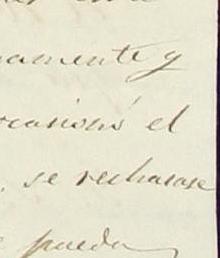 amente y
ocasionó el
se rechazase
pueda